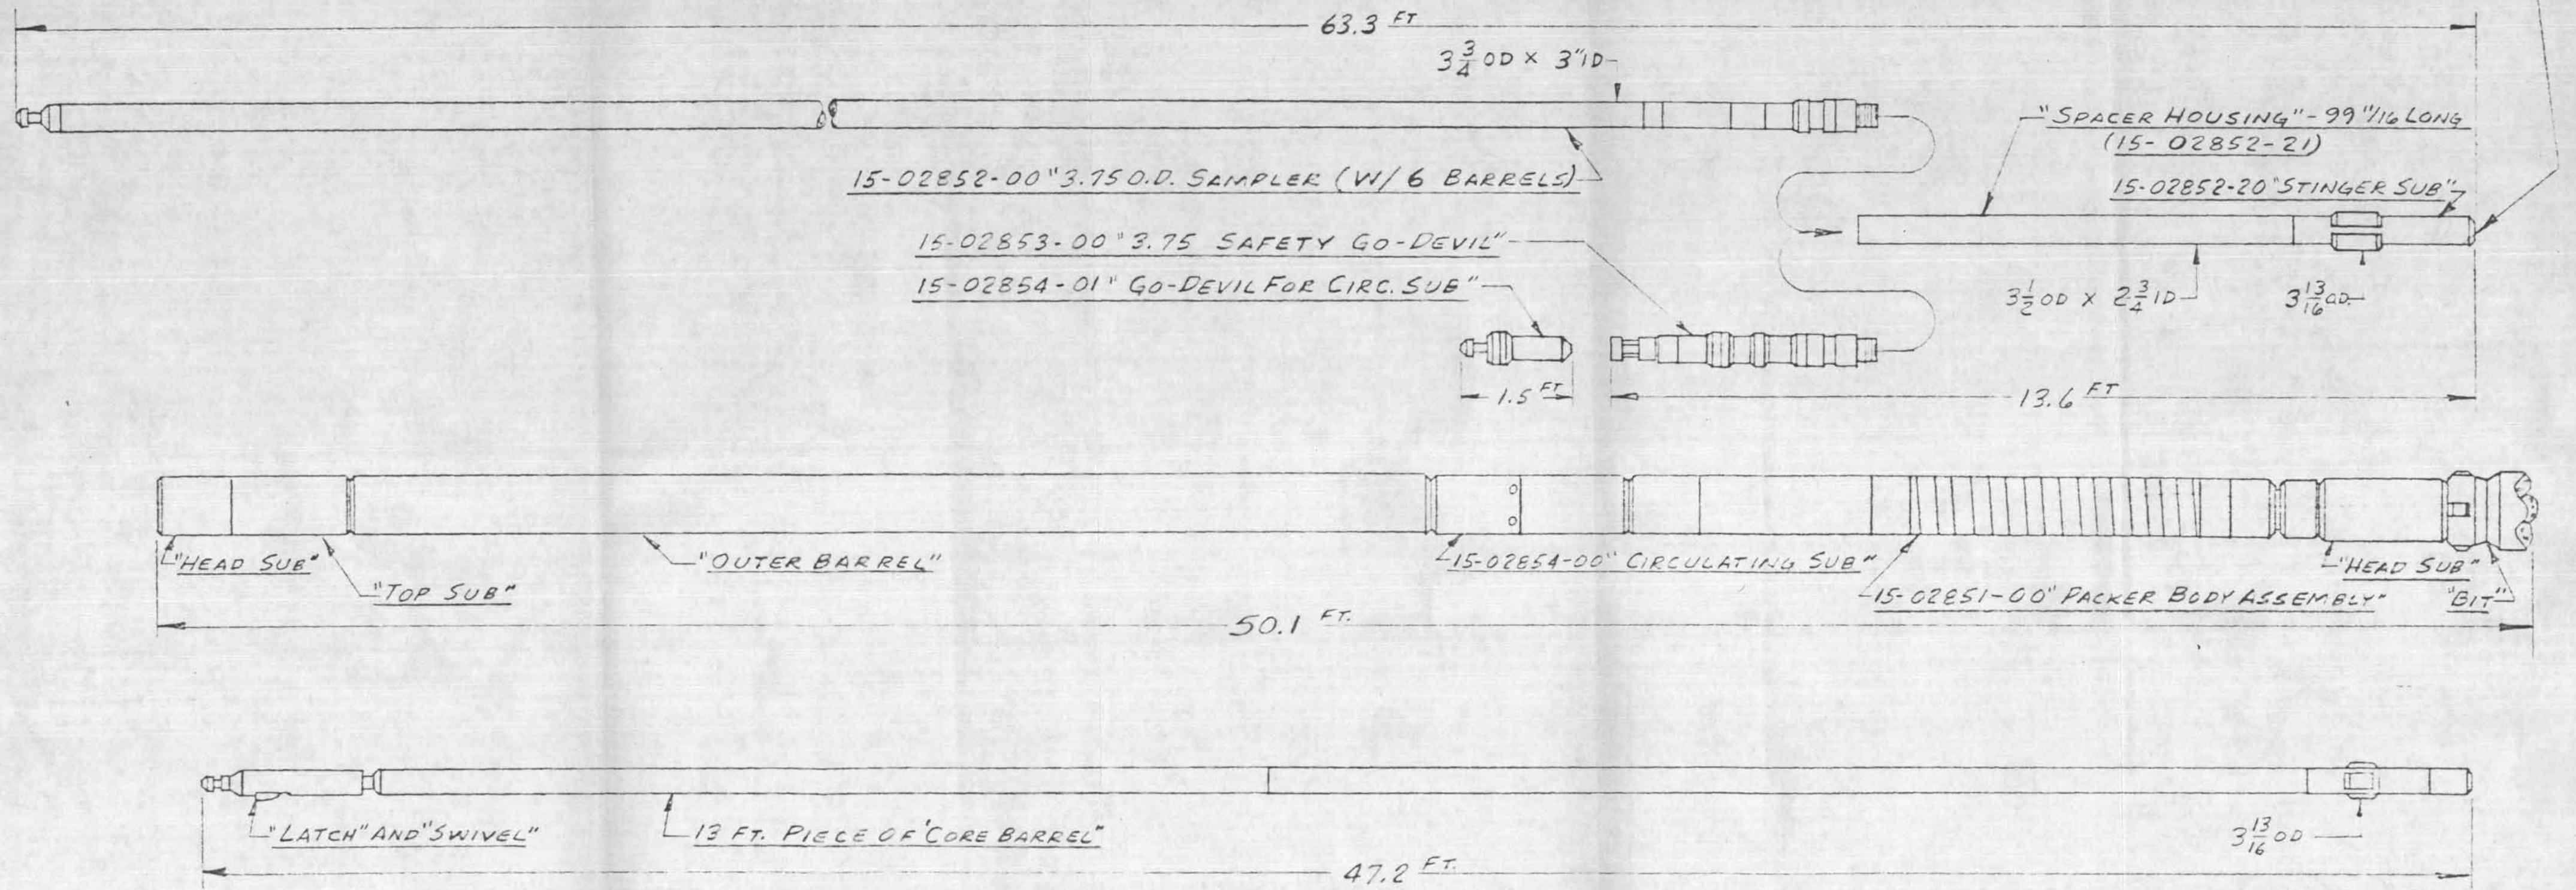 63.3 FT
3 3/4 OD × 3" ID
"SPACER HOUSING" - 99 11/16 LONG
(15-02852-21)
15-02852-00 "3.75 O.D. SAMPLER (W/ 6 BARRELS)
15-02852-20 "STINGER SUB"
15-02853-00 "3.75 SAFETY GO-DEVIL"
15-02854-01 "GO-DEVIL FOR CIRC. SUB"
3 1/2 OD X 2 3/4 ID
3 13/16 OD.
1.5 FT
13.6 FT
"HEAD SUB"
"TOP SUB"
"OUTER BARREL"
15-02854-00 "CIRCULATING SUB"
15-02851-00 "PACKER BODY ASSEMBLY"
"HEAD SUB"
"BIT"
50.1 FT.
"LATCH" AND "SWIVEL"
13 FT. PIECE OF "CORE BARREL"
3 13/16 OD
47.2 FT.